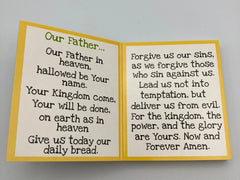 Our Father...
Our Father in
heaven,
hallowed be Your
name.
Your Kingdom come,
Your will be done,
on earth as in
heaven
Give us today our
daily bread.
Forgive us our sins,
as we forgive those
who sin against us.
Lead us not into
temptation, but
deliver us from evil.
For the kingdom, the
power, and the glory
are Yours. Now and
Forever Amen.